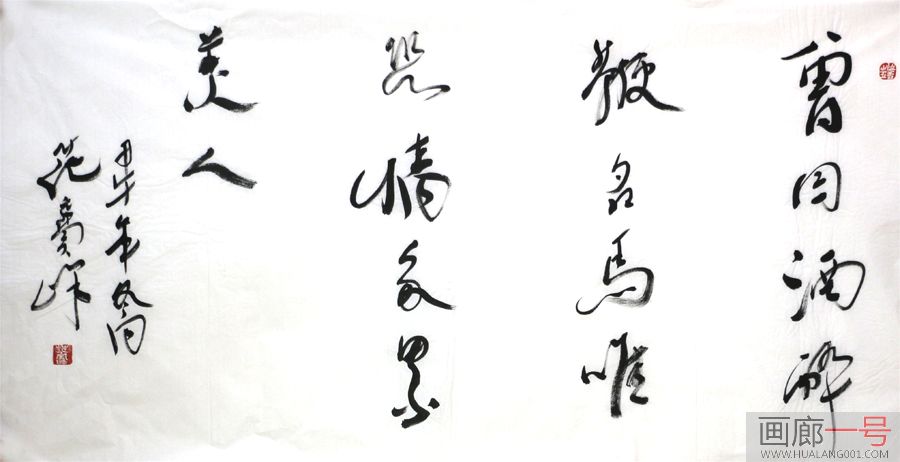 曾因酒醉
鞭名馬唯
恐情多累
美人
甲午年
画廊一号
WWW.HUALANG001.COM